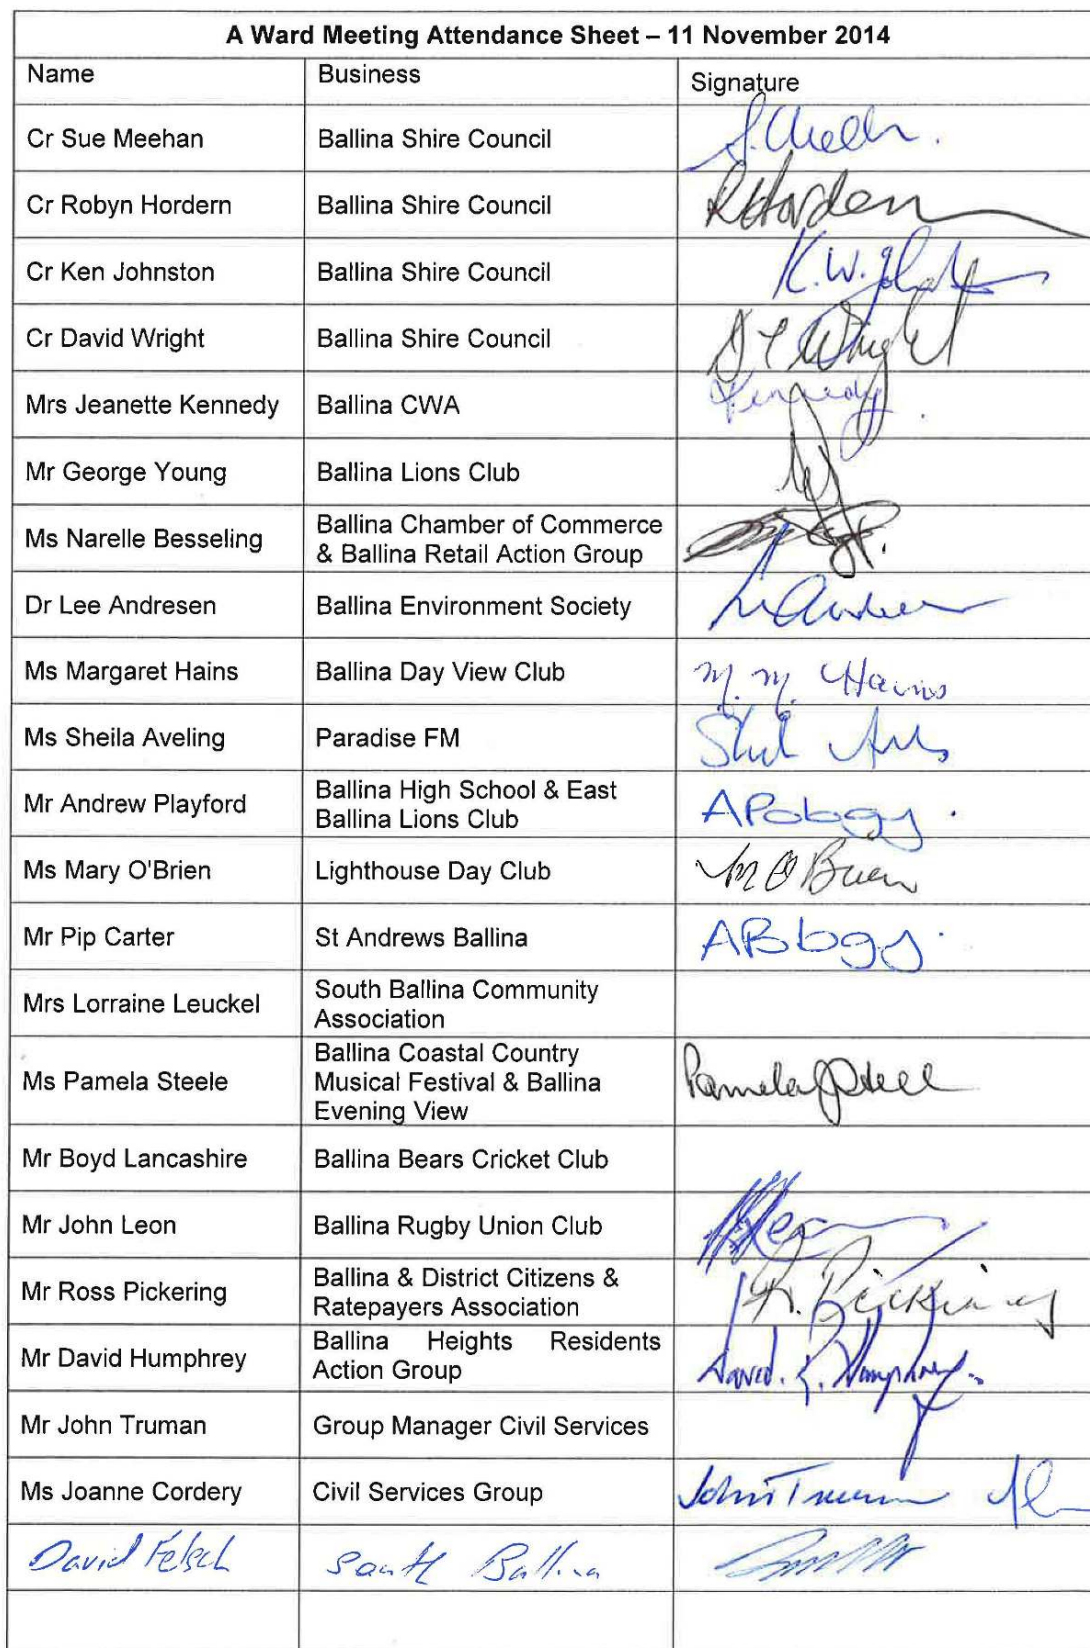 A Ward Meeting Attendance Sheet – 11 November 2014
Name Business Signature
Cr Sue Meehan Ballina Shire Council
Cr Robyn Hordern Ballina Shire Council RHordern
Cr Ken Johnston Ballina Shire Council K.W. Johnston
Cr David Wright Ballina Shire Council Wright
Mrs Jeanette Kennedy Ballina CWA Kennedy
Mr George Young Ballina Lions Club
Ms Narelle Besseling Ballina Chamber of Commerce
& Ballina Retail Action Group
Dr Lee Andresen Ballina Environment Society
Ms Margaret Hains Ballina Day View Club M. M. Hains
Ms Sheila Aveling Paradise FM
Mr Andrew Playford Ballina High School & East
Ballina Lions Club Apology.
Ms Mary O'Brien Lighthouse Day Club M O'Brien
Mr Pip Carter St Andrews Ballina Apology.
Mrs Lorraine Leuckel South Ballina Community
Association
Ms Pamela Steele Ballina Coastal Country
Musical Festival & Ballina
Evening View Pamela Steele
Mr Boyd Lancashire Ballina Bears Cricket Club
Mr John Leon Ballina Rugby Union Club
Mr Ross Pickering Ballina & District Citizens &
Ratepayers Association R. Pickering
Mr David Humphrey Ballina Heights Residents
Action Group David. R. Humphrey.
Mr John Truman Group Manager Civil Services
Ms Joanne Cordery Civil Services Group John Truman
David Felsch South Ballina